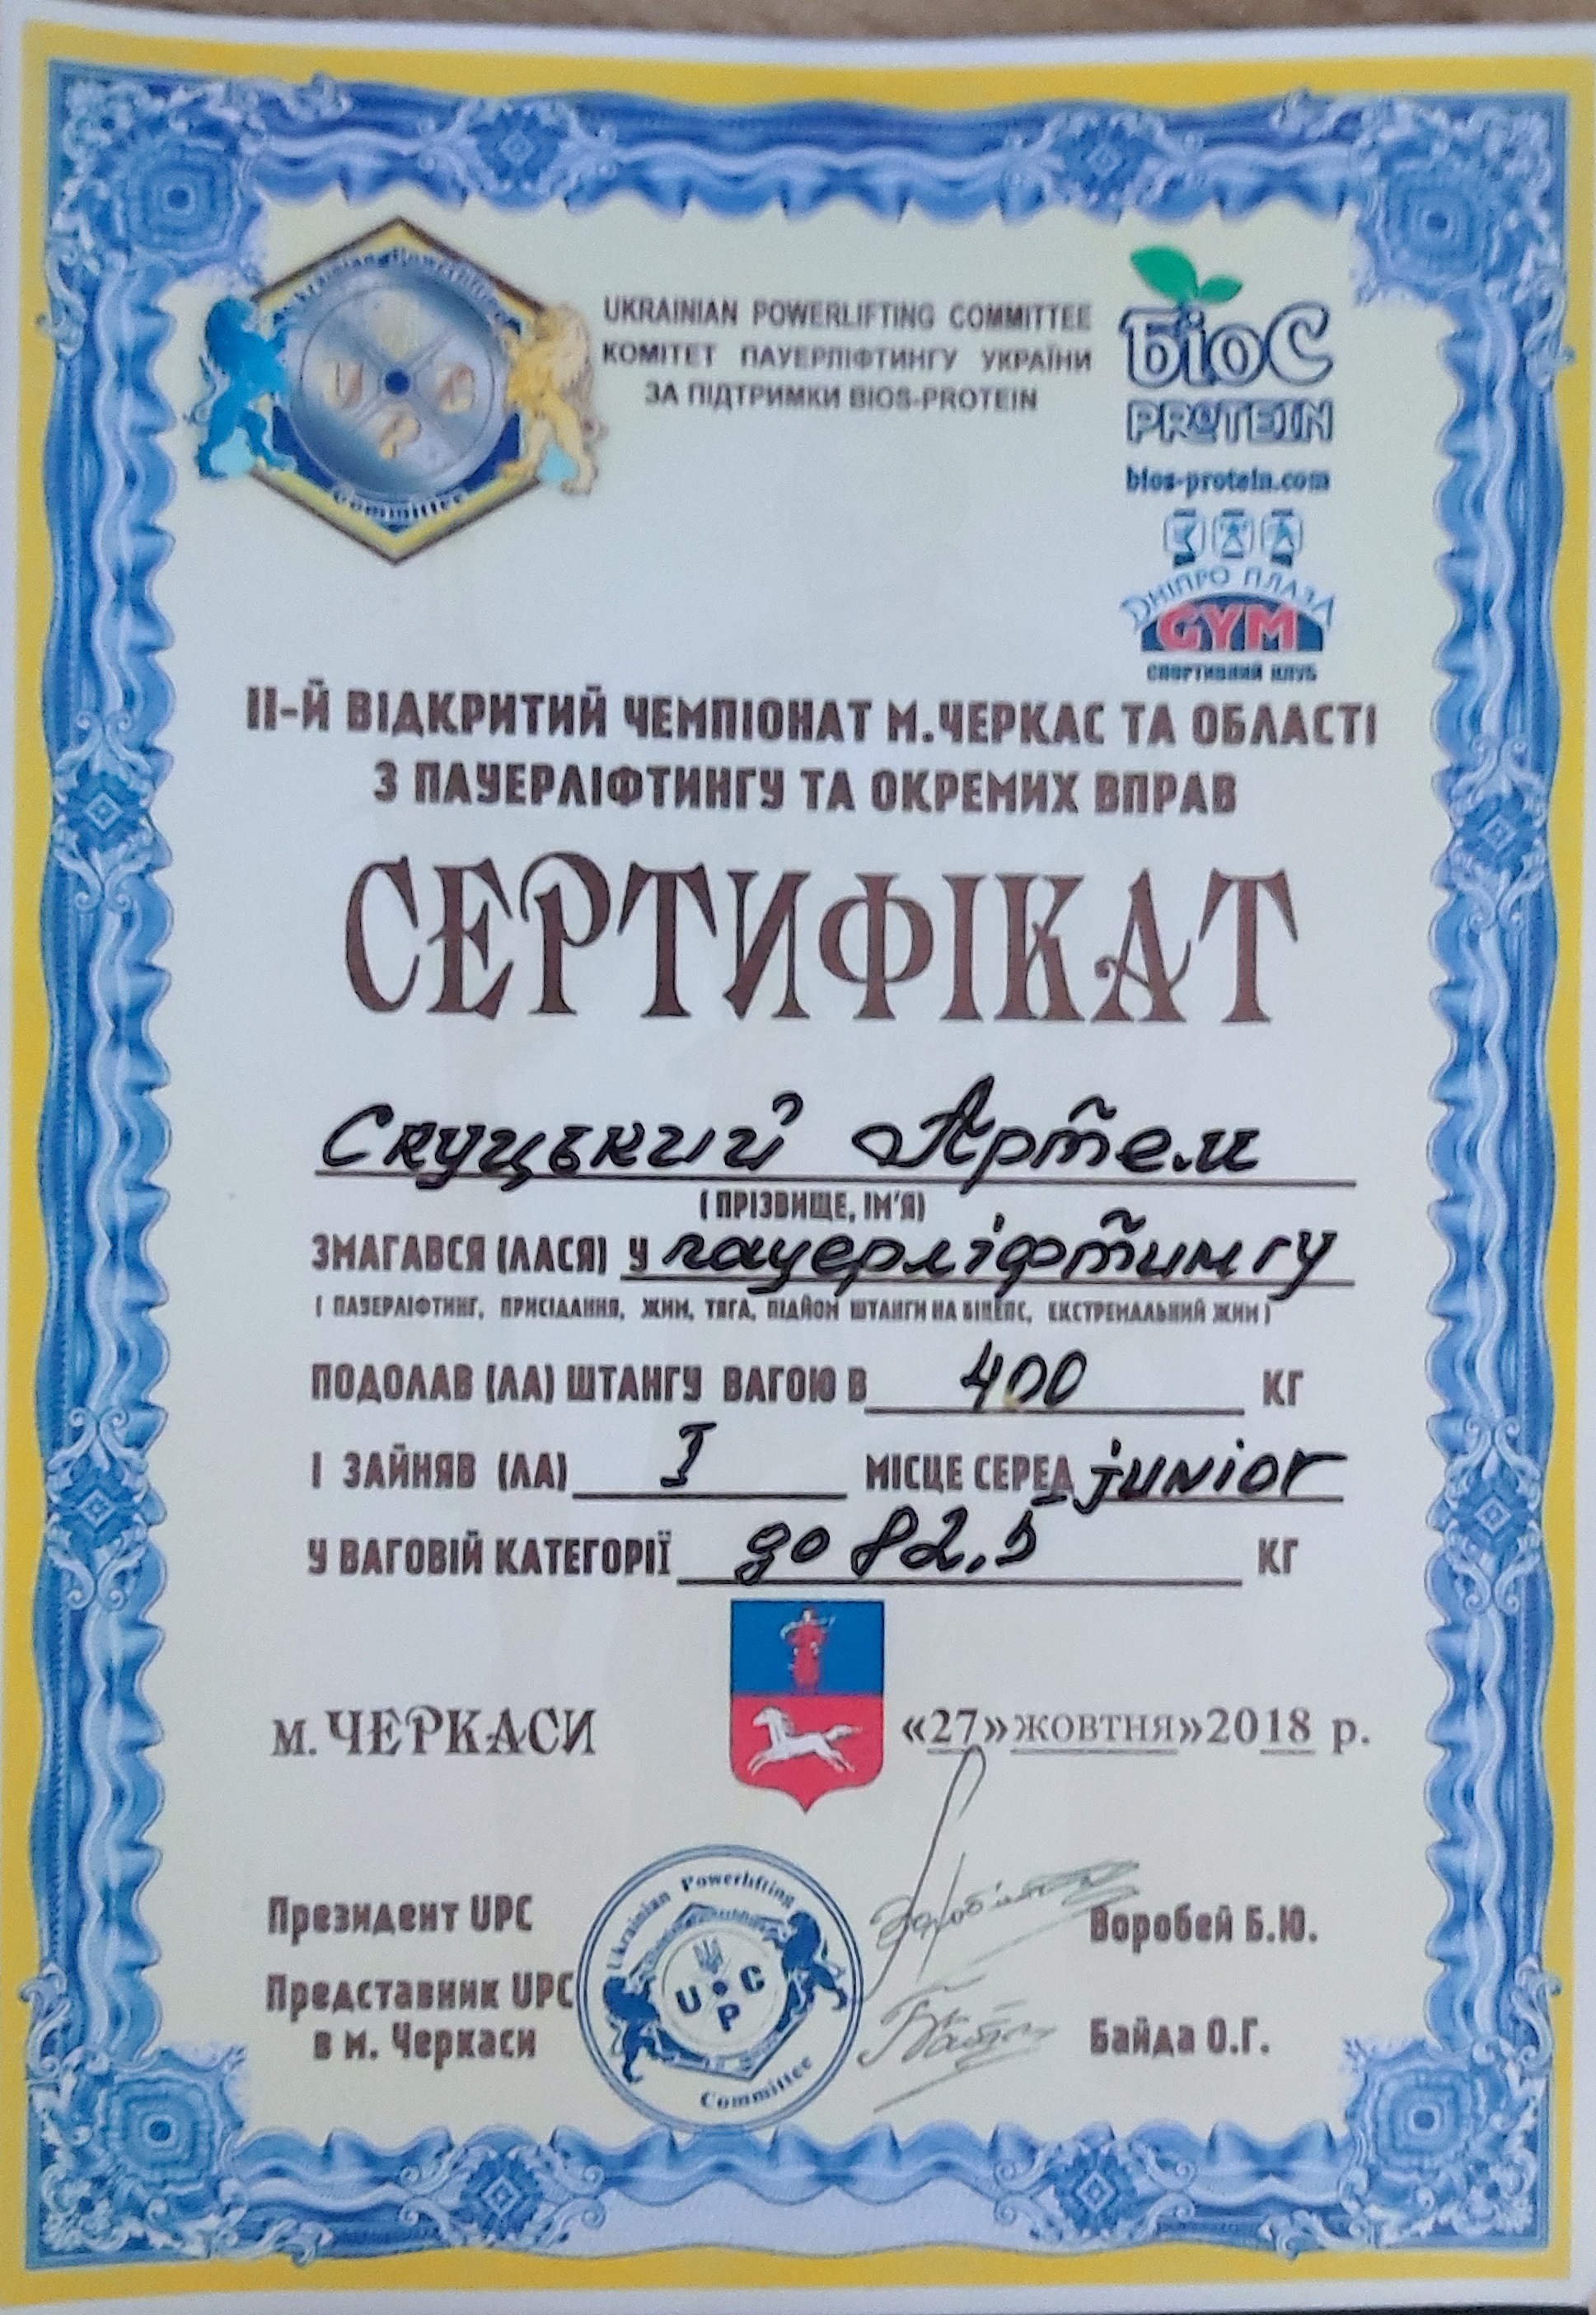 Ukrainian Powerlifting
U P C
Committee
UKRAINIAN POWERLIFTING COMMITTEE
КОМІТЕТ ПАУЕРЛІФТИНГУ УКРАЇНИ
ЗА ПІДТРИМКИ BIOS-PROTEIN
БіоС
PROTEIN
bios-protein.com
ДНІПРО ПЛАЗА
GYM
СПОРТИВНИЙ КЛУБ
ІІ-Й ВІДКРИТИЙ ЧЕМПІОНАТ М.ЧЕРКАС ТА ОБЛАСТІ
З ПАУЕРЛІФТИНГУ ТА ОКРЕМИХ ВПРАВ
СЕРТИФІКАТ
Скуцький Артем
(ПРІЗВИЩЕ, ІМ'Я)
ЗМАГАВСЯ (ЛАСЯ) У пауерліфтингу
( ПАУЕРЛІФТИНГ, ПРИСІДАННЯ, ЖИМ, ТЯГА, ПІДЙОМ ШТАНГИ НА БІЦЕПС, ЕКСТРЕМАЛЬНИЙ ЖИМ )
ПОДОЛАВ (ЛА) ШТАНГУ ВАГОЮ В 400 КГ
І ЗАЙНЯВ (ЛА) I МІСЦЕ СЕРЕД junior
У ВАГОВІЙ КАТЕГОРІЇ до 82,5 КГ
м. ЧЕРКАСИ «27»жовтня»2018 р.
Президент UPC Воробей Б.Ю.
Представник UPC
в м. Черкаси Байда О.Г.
Ukrainian Powerlifting
U P C
Committee